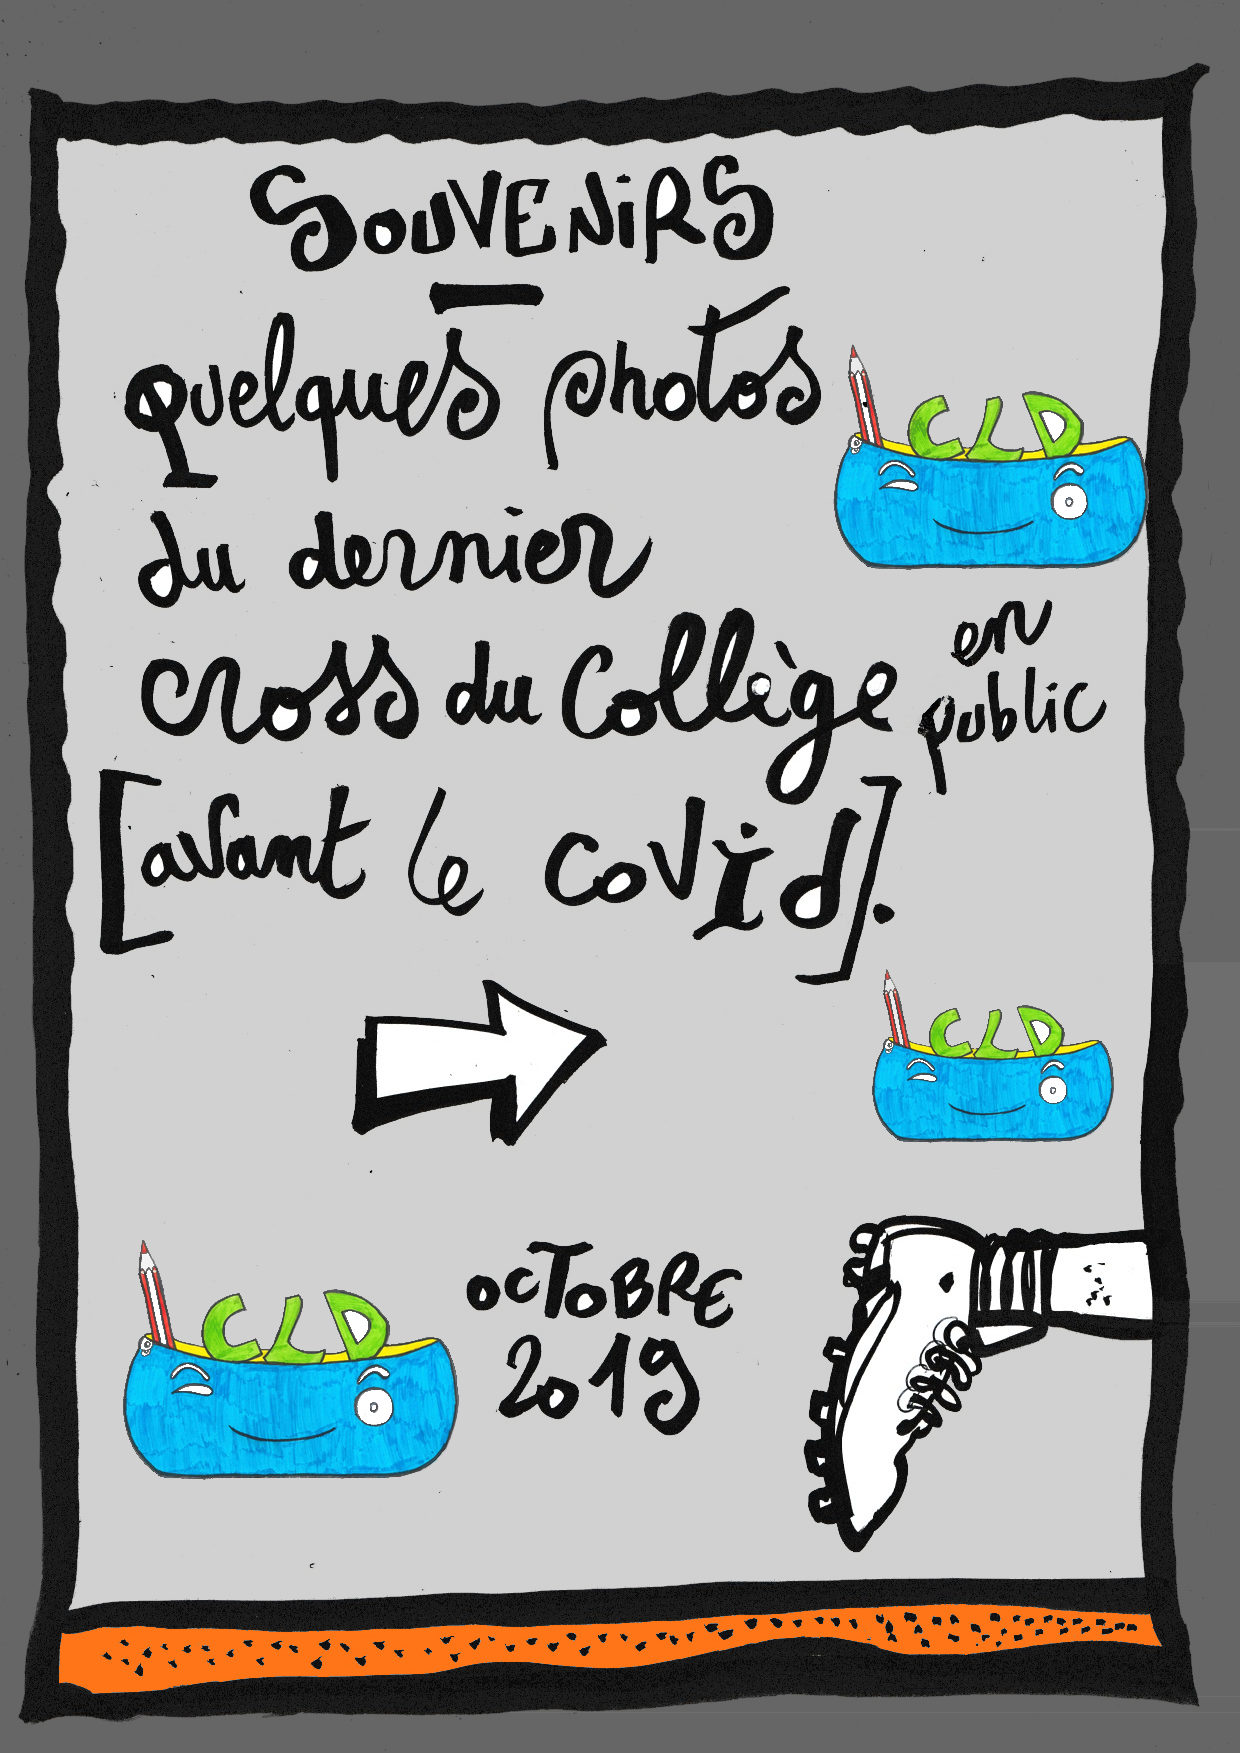 SOUVENIRS
quelques photos
CLD
du dernier
cross du Collège en
public
[avant le covid].
CLD
OCTOBRE
2019
CLD